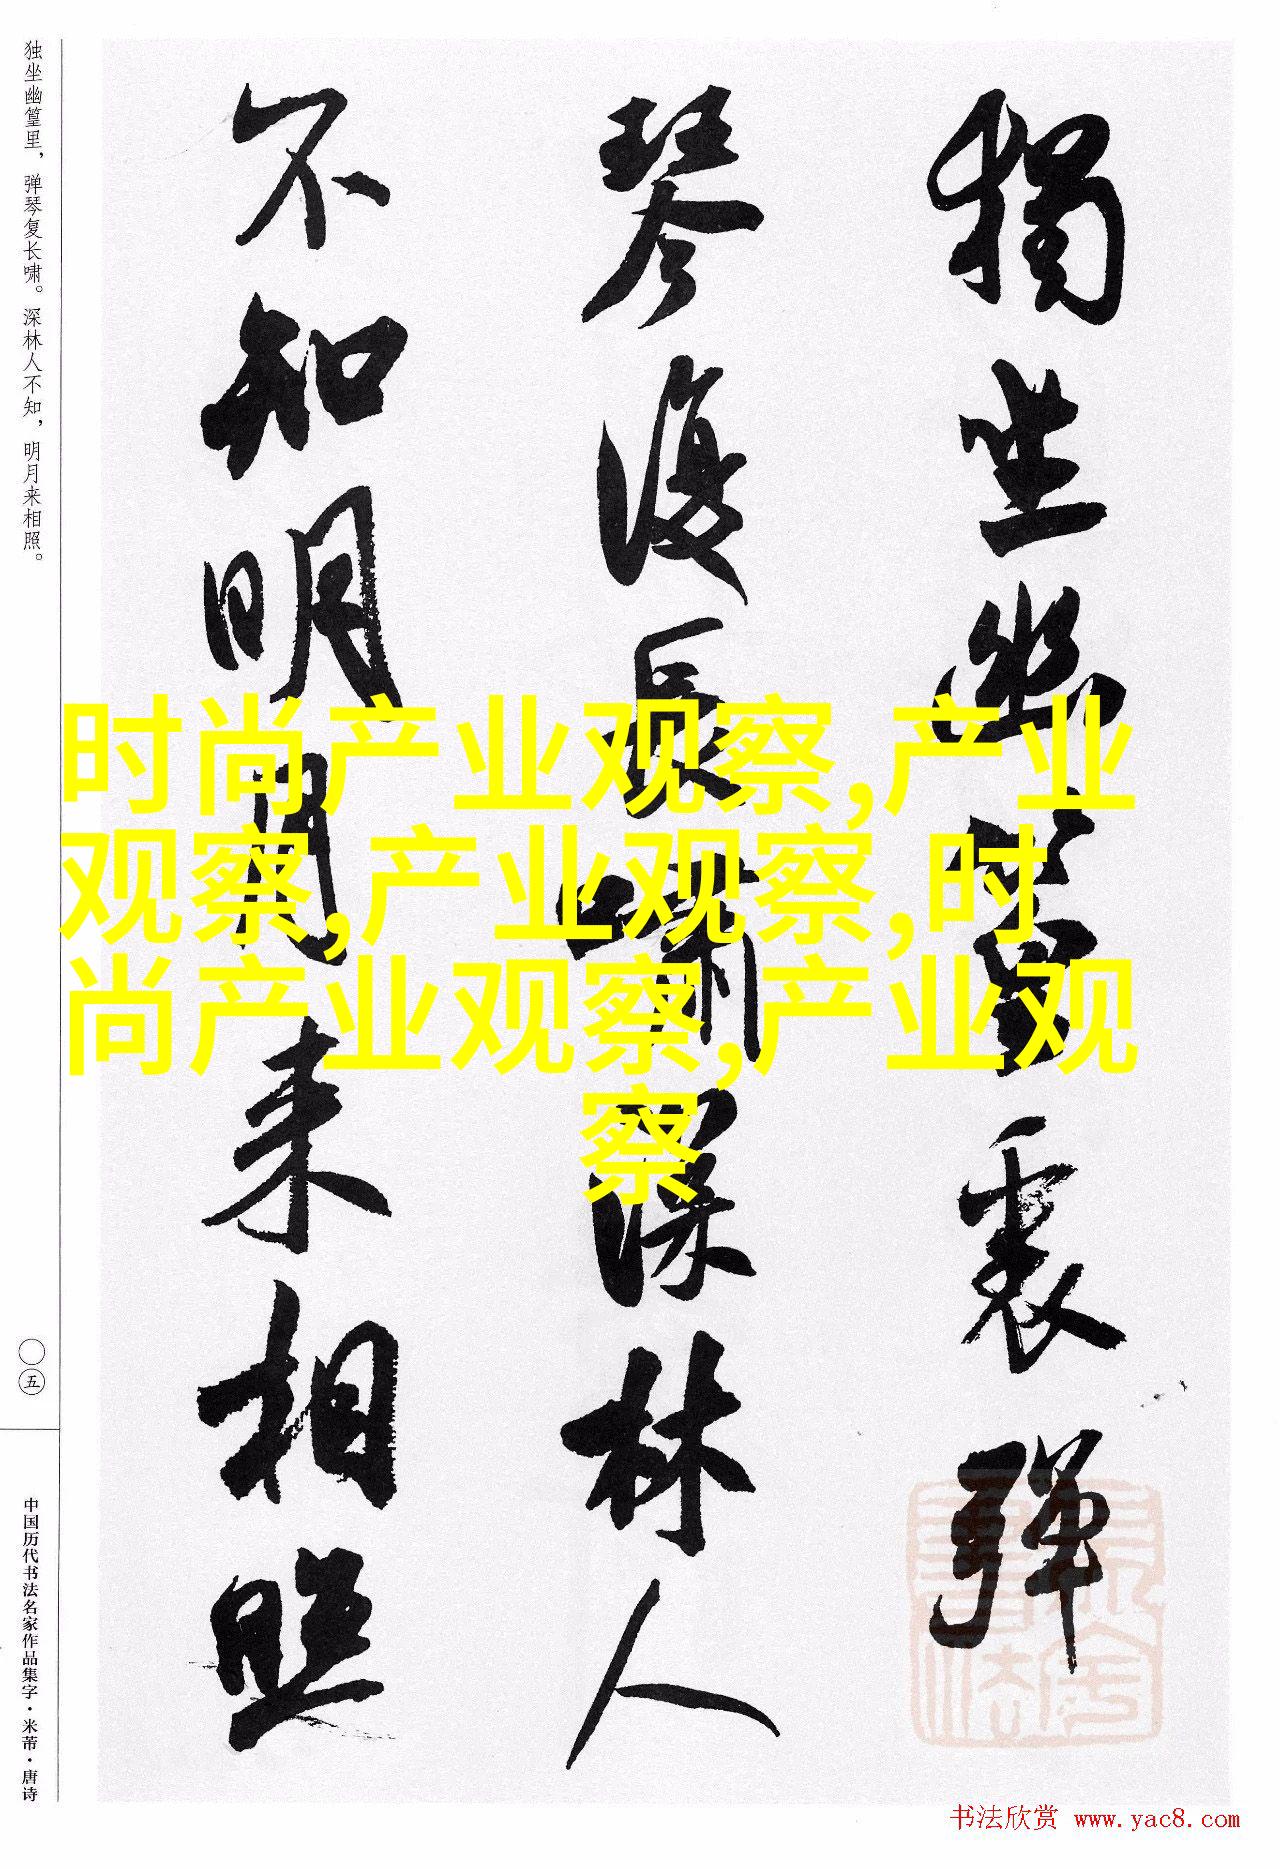 獨坐幽篁裏彈
琴復長嘯深林人
不知明月来相照
独坐幽篁里，弹琴复长啸。深林人不知，明月来相照。
〇五
中国历代书法名家作品集字·米芾·唐诗
时尚产业观察,产业
观察,产业观察,时
尚产业观察,产业观
察
书法欣赏 www.yac8.com